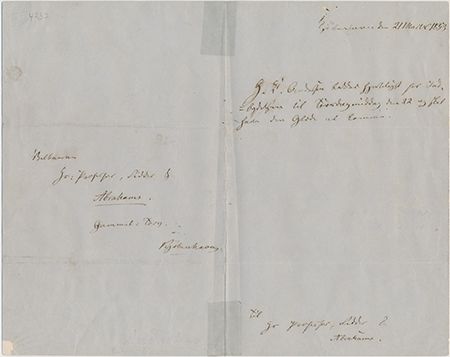 4232
Velbaarne
Hr: Professor, Ridder
Abrahams.
Gammel-Torv.
Kjøbenhavn
Kjøbenhavn den 21 Marts 1853
H. C. Andersen takker hjerteligt for Ind-
bydelsen til Tirsdag middag den 22 og skal
have den Glæde at komme.
Til
Hr Professor, Ridder
Abrahams.